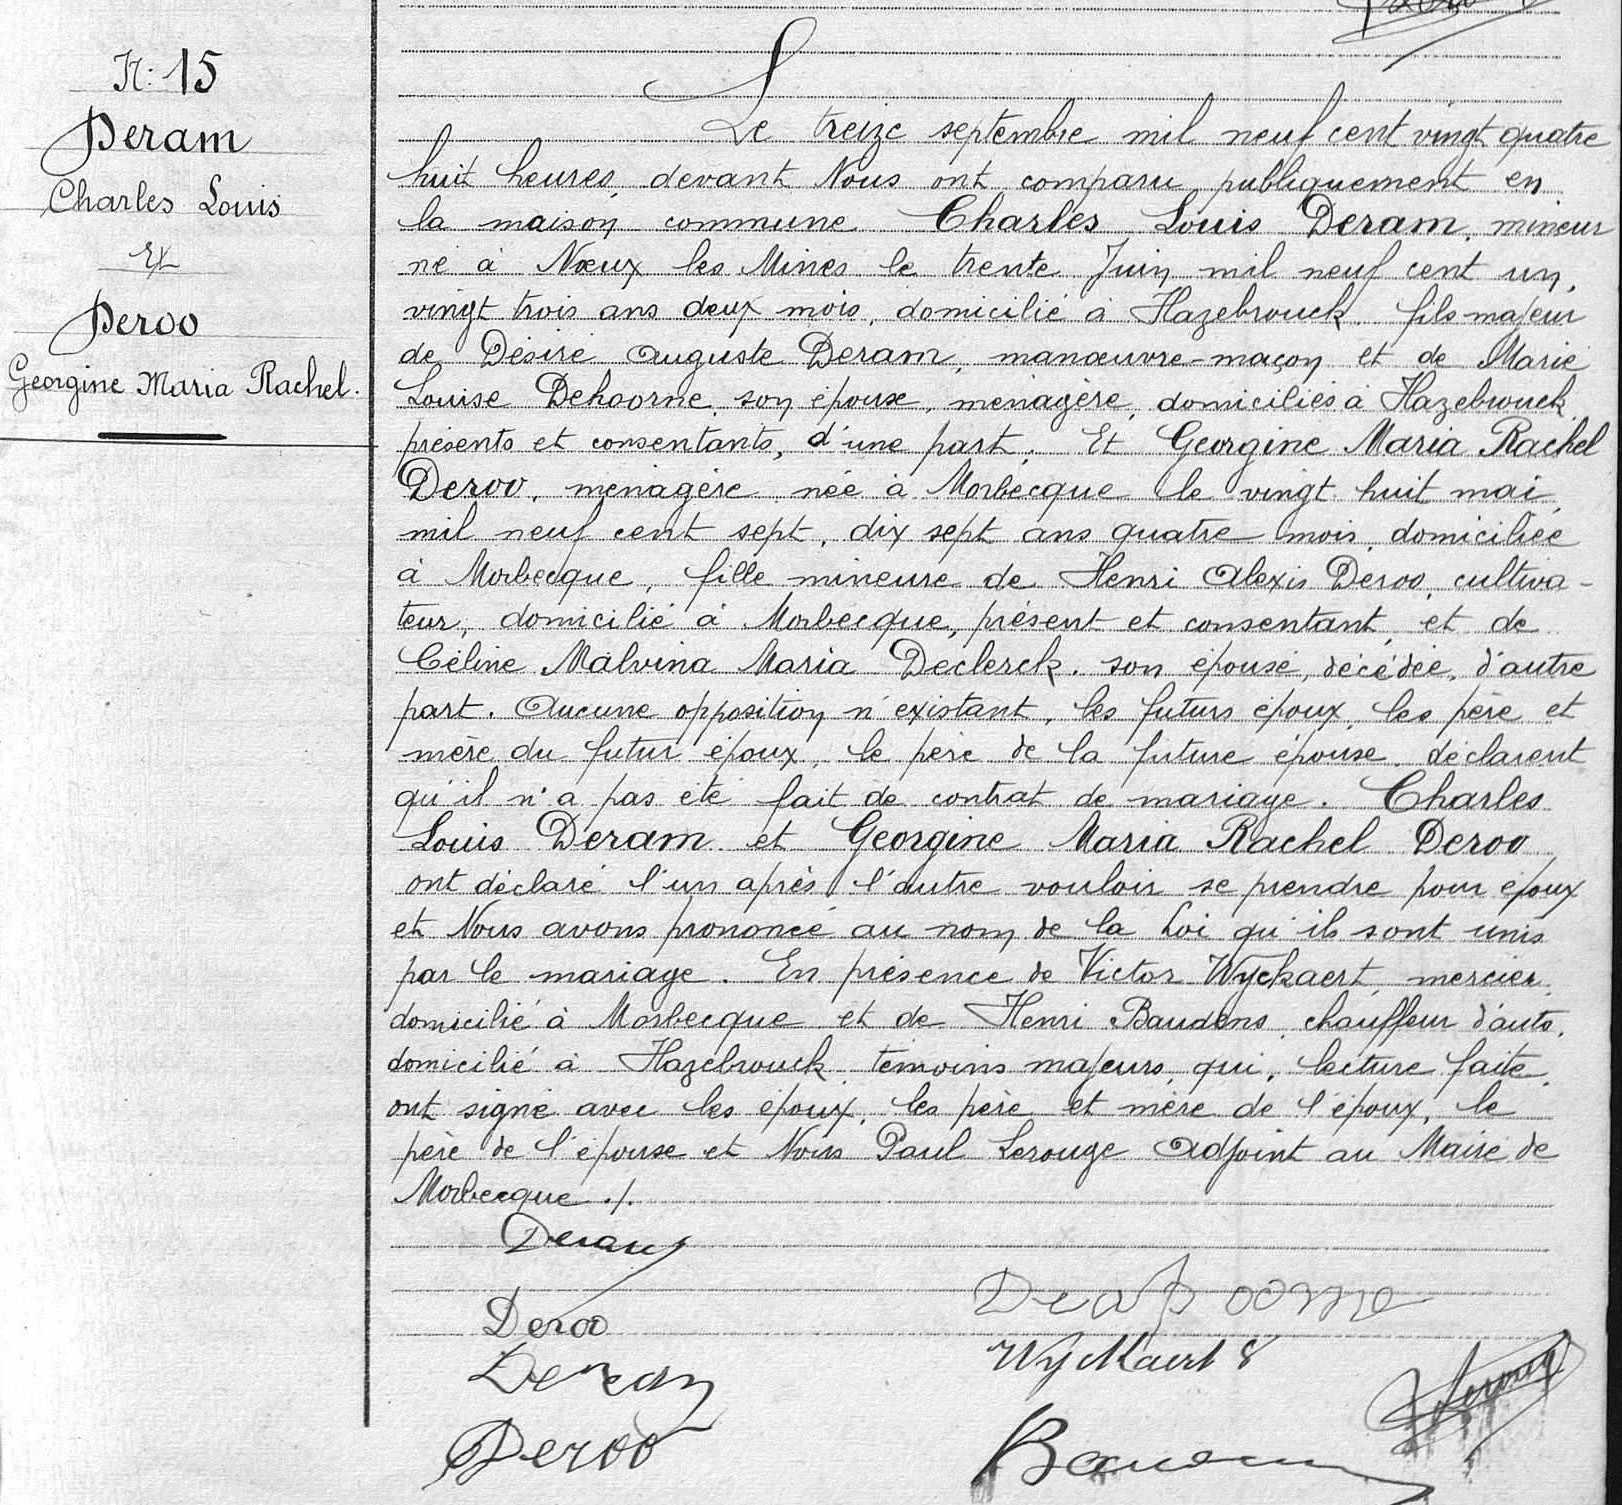 N: 15
Deram
Charles Louis
Et
Deroo
Georgine Maria Rachel.
Le treize septembre mil neuf cent vingt quatre
huit heures, devant Nous ont comparu publiquement en
la maison commune Charles Louis Deram, mineur
né à Nœux les Mines le trente Juin mil neuf cent un,
vingt trois ans deux mois, domicilié à Hazebrouck, fils majeur
de Désiré Auguste Deram, manœuvre-maçon et de Marie
Louise Dehoorne, son épouse, ménagère, domiciliés à Hazebrouck,
présents et consentants, d'une part; Et Georgine Maria Rachel
Deroo, ménagère, née à Morbecque le vingt huit mai
mil neuf cent sept, dix sept ans quatre mois, domiciliée
à Morbecque, fille mineure de Henri Alexis Deroo, cultiva-
teur, domicilié à Morbecque, présent et consentant, et de
Céline Malvina Maria Declerck, son épouse, décédée, d'autre
part. Aucune opposition n'existant, les futurs époux, les père et
mère du futur époux, le père de la future épouse, déclarent
qu'il n'a pas été fait de contrat de mariage. Charles
Louis Deram et Georgine Maria Rachel Deroo
ont déclaré l'un après l'autre vouloir se prendre pour époux
et Nous avons prononcé au nom de la Loi qu'ils sont unis
par le mariage. En présence de Victor Wyckaert, mercier,
domicilié à Morbecque et de Henri Baudens, chauffeur d'auto,
domicilié à Hazebrouck, témoins majeurs, qui, lecture faite,
ont signé avec les époux, les père et mère de l'époux, le
père de l'épouse et Nous Paul Lerouge Adjoint au Maire de
Morbecque ./.
Deram
Deroo
Wyckaert
Deram
Lerouge
Deroo